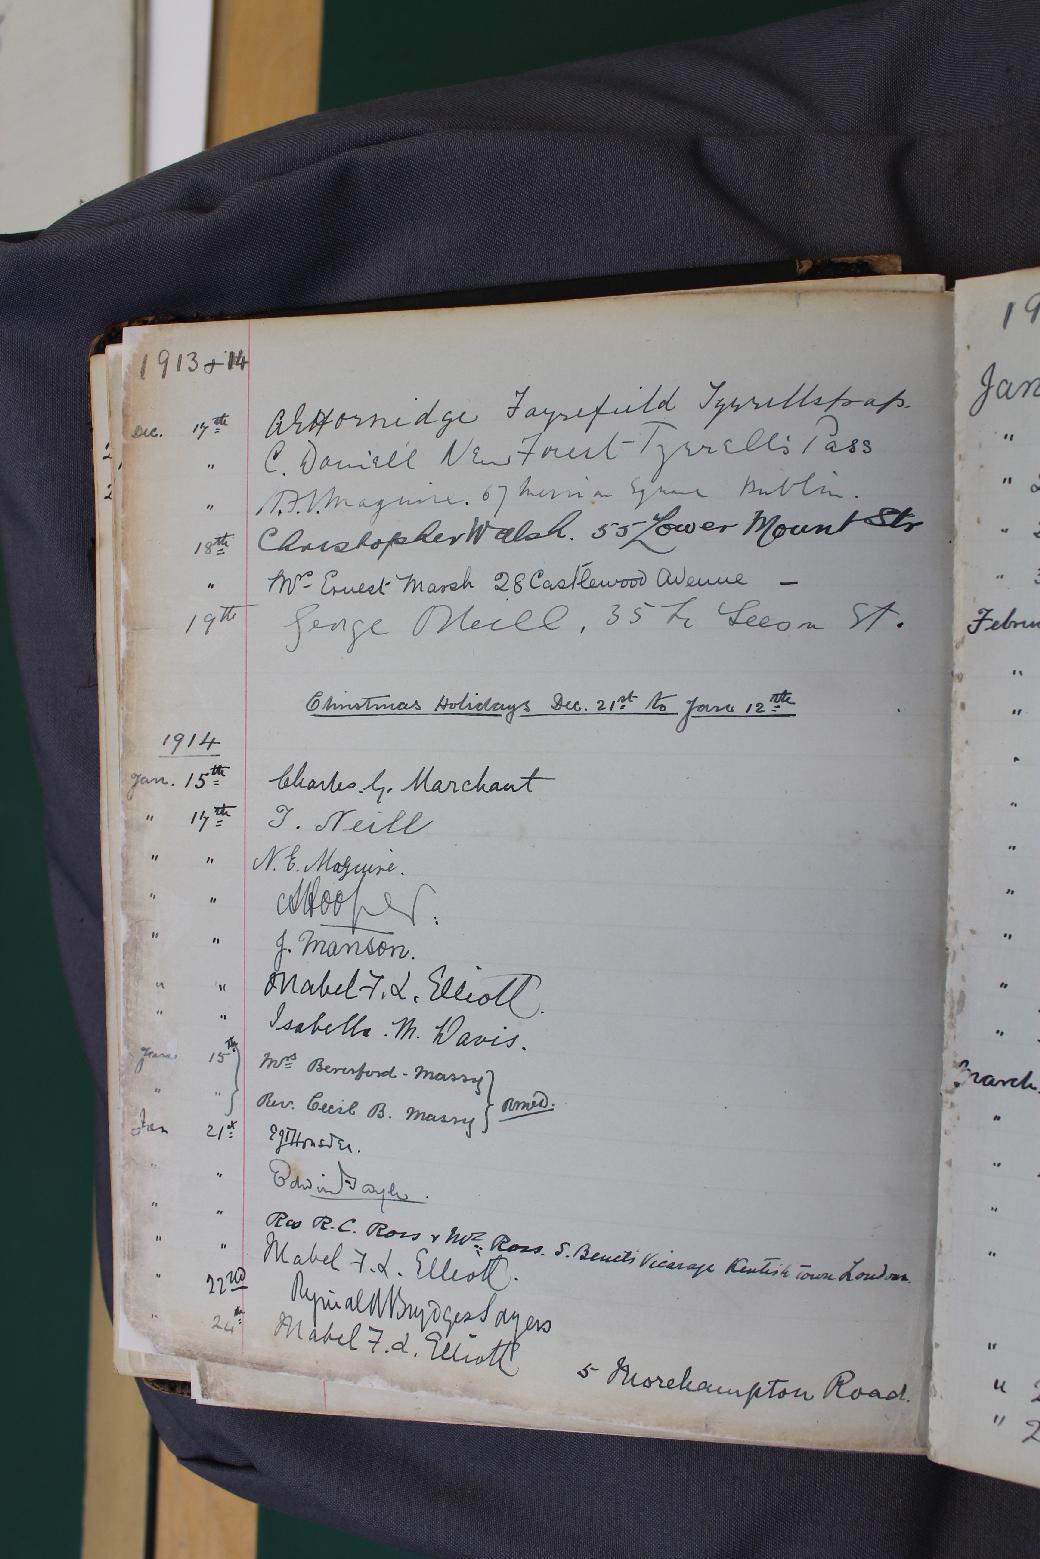 1913 + 14
Dec. 17th A E Hornidge Fayrefield Tyrrellspass
" C. Daniell New Forest Tyrrells Pass
" Maguire. 67 Merrion Square Dublin.
18th Christopher Walsh. 55 Lower Mount Str
" Mrs Ernest Marsh 28 Castlewood Avenue —
19th George O'Neill, 35 Lr Leeson St.
Christmas Holidays Dec. 21st to Jan 12th
1914
Jan. 15th Charles. G. Marchant
" 17th T. Neill
" " N. E. Maguire.
" " Hooper.
" " J. Manson.
" " Mabel F. L. Elliott.
" " Isabella. M. Davis.
Jan. 15th Mrs Beresford-Massy
" " Rev. Cecil B. Massy
Jan 21st
" " Edwin
" " Rev R. C. Ross & Mrs Ross. S. Benets Vicarage Kentish Town London.
" " Mabel F. L. Elliott.
" 22nd Reginald Brydges Sayers
" 24th Mabel F. L. Elliott
5 Morehampton Road.
19
Jan
"
"
"
"
Febru
"
"
"
"
"
"
"
"
"
March.
"
"
"
"
"
"
"